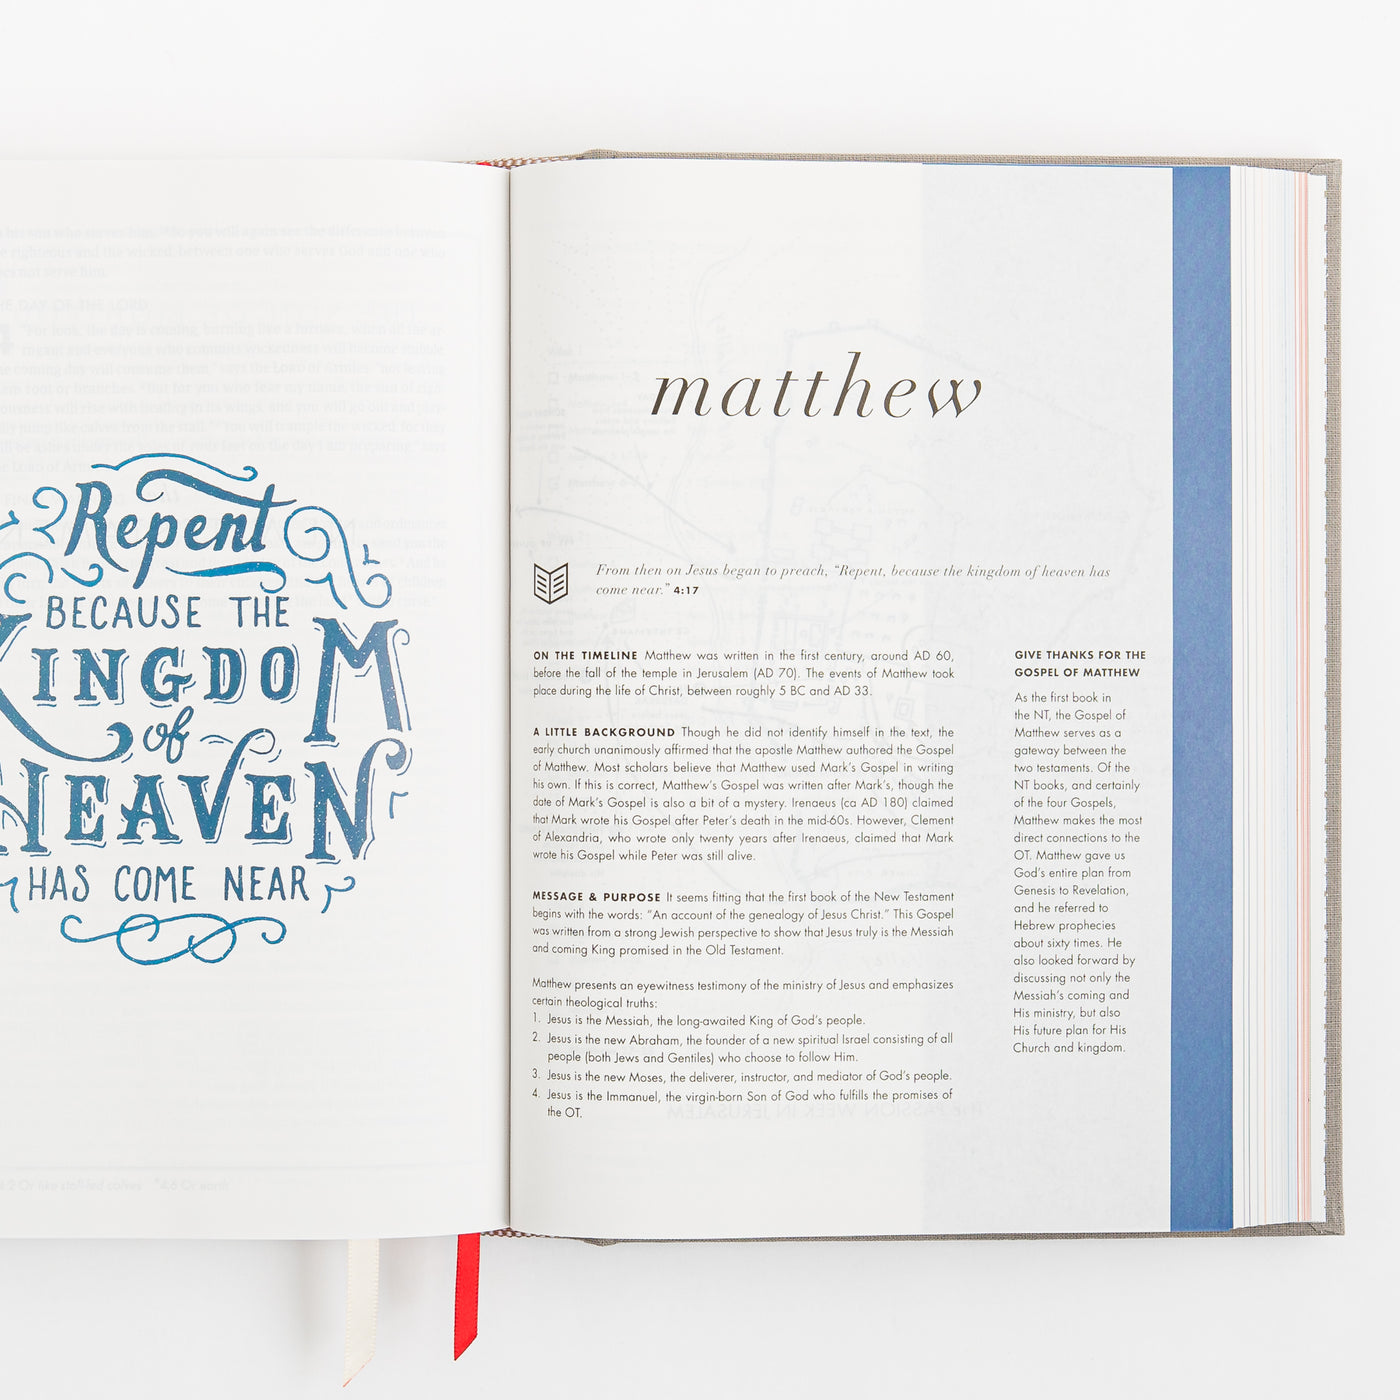 Repent
BECAUSE THE
KINGDOM
of
HEAVEN
HAS COME NEAR
matthew
From then on Jesus began to preach, “Repent, because the kingdom of heaven has
come near.” 4:17
ON THE TIMELINE Matthew was written in the first century, around AD 60,
before the fall of the temple in Jerusalem (AD 70). The events of Matthew took
place during the life of Christ, between roughly 5 BC and AD 33.
A LITTLE BACKGROUND Though he did not identify himself in the text, the
early church unanimously affirmed that the apostle Matthew authored the Gospel
of Matthew. Most scholars believe that Matthew used Mark’s Gospel in writing
his own. If this is correct, Matthew’s Gospel was written after Mark’s, though the
date of Mark’s Gospel is also a bit of a mystery. Irenaeus (ca AD 180) claimed
that Mark wrote his Gospel after Peter’s death in the mid-60s. However, Clement
of Alexandria, who wrote only twenty years after Irenaeus, claimed that Mark
wrote his Gospel while Peter was still alive.
MESSAGE & PURPOSE It seems fitting that the first book of the New Testament
begins with the words: “An account of the genealogy of Jesus Christ.” This Gospel
was written from a strong Jewish perspective to show that Jesus truly is the Messiah
and coming King promised in the Old Testament.
Matthew presents an eyewitness testimony of the ministry of Jesus and emphasizes
certain theological truths:
1. Jesus is the Messiah, the long-awaited King of God’s people.
2. Jesus is the new Abraham, the founder of a new spiritual Israel consisting of all
people (both Jews and Gentiles) who choose to follow Him.
3. Jesus is the new Moses, the deliverer, instructor, and mediator of God’s people.
4. Jesus is the Immanuel, the virgin-born Son of God who fulfills the promises of
the OT.
GIVE THANKS FOR THE
GOSPEL OF MATTHEW
As the first book in
the NT, the Gospel of
Matthew serves as a
gateway between the
two testaments. Of the
NT books, and certainly
of the four Gospels,
Matthew makes the most
direct connections to the
OT. Matthew gave us
God’s entire plan from
Genesis to Revelation,
and he referred to
Hebrew prophecies
about sixty times. He
also looked forward by
discussing not only the
Messiah’s coming and
His ministry, but also
His future plan for His
Church and kingdom.